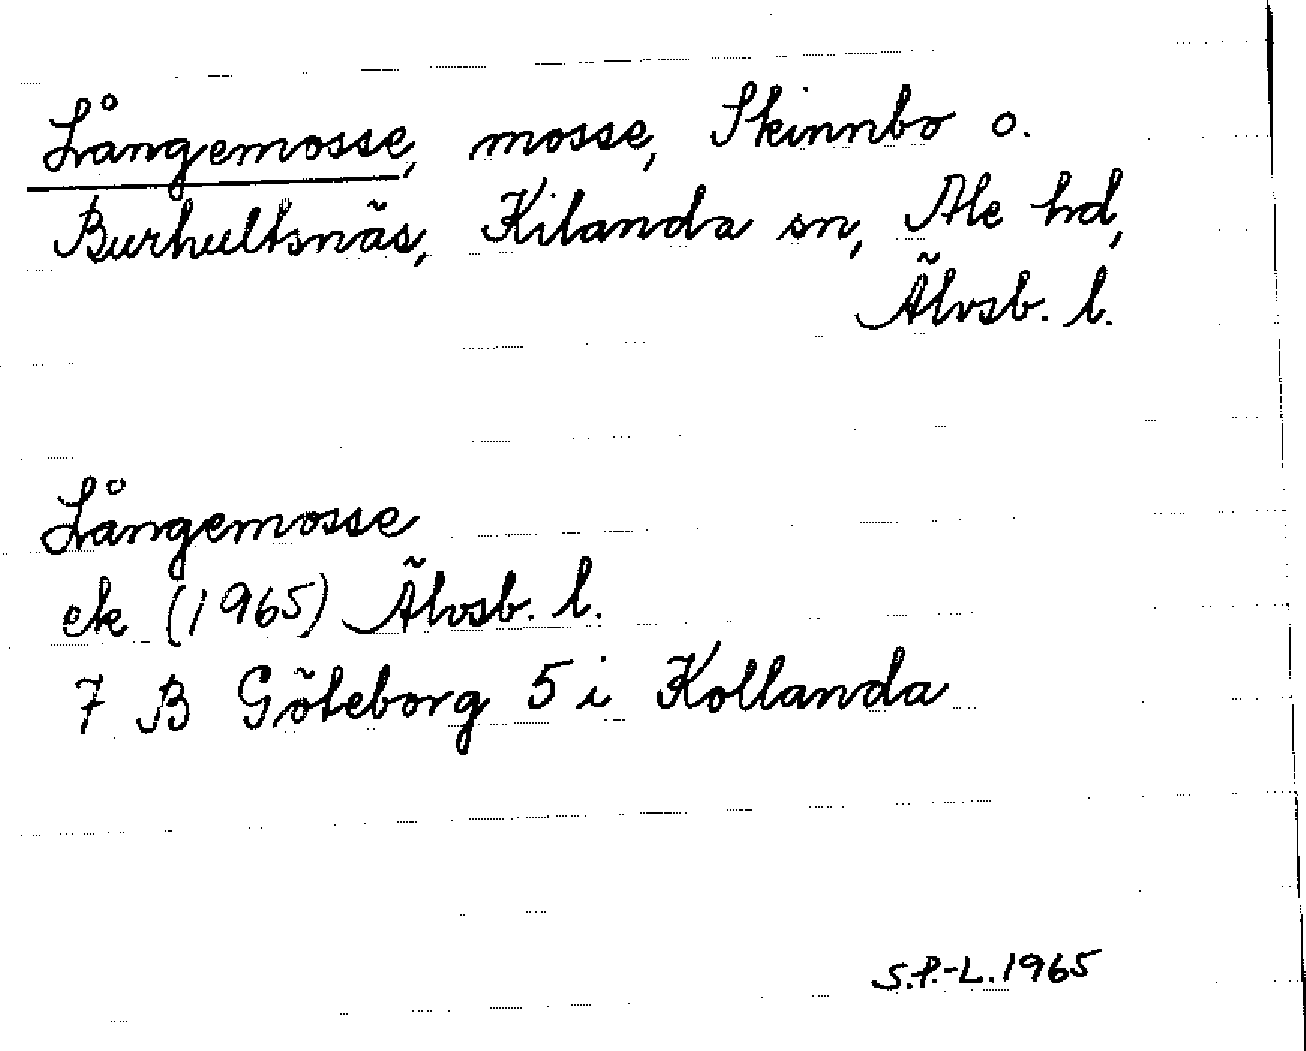 Långemosse, mosse, Skinnbo o.
Burhultsnäs, Kilanda sn, Ale hd,
Älvsb. l.
Långemosse
ek (1965) Älvsb. l.
7 B Göteborg 5 i Kollanda
S.P.-L. 1965